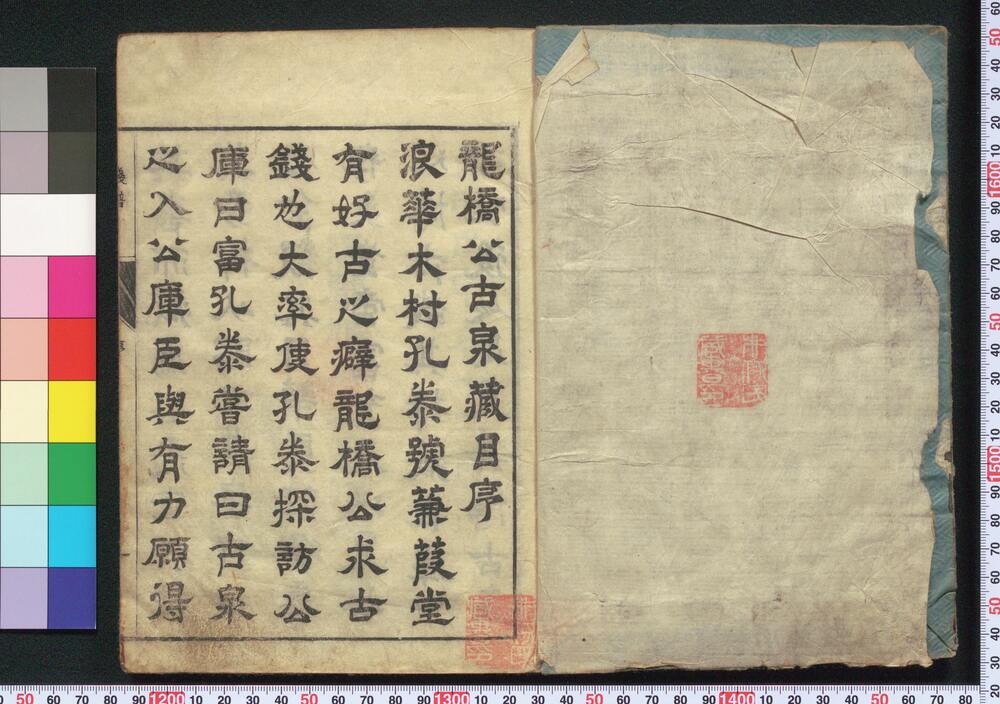 龍橋公古泉藏目序
浪華木村孔泰號蒹葭堂
有好古之癖龍橋公求古
錢也大率使孔泰探訪公
庫曰富孔泰嘗請曰古泉
之入公庫臣與有力願得